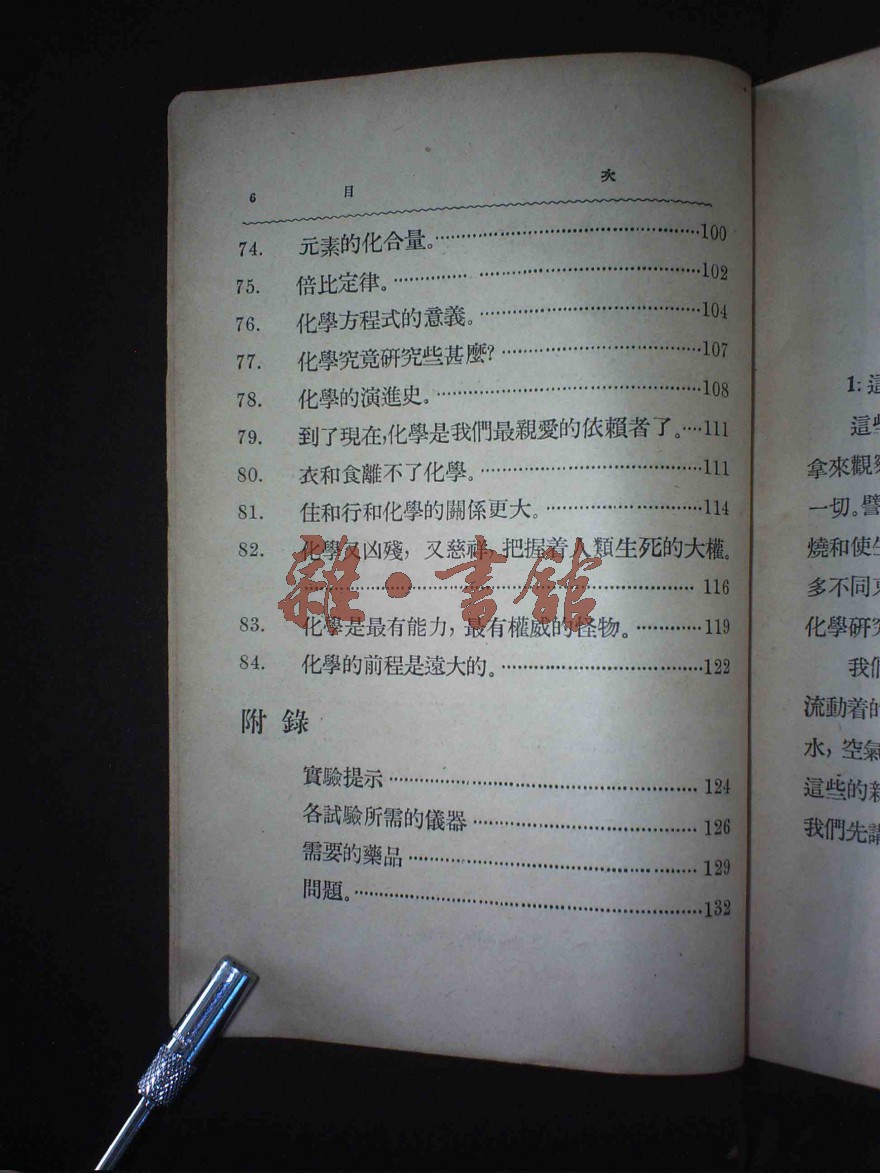 6 目 次
74. 元素的化合量。……100
75. 倍比定律。……102
76. 化學方程式的意義。……104
77. 化學究竟研究些甚麼?……107
78. 化學的演進史。……108
79. 到了現在,化學是我們最親愛的依賴者了。…111
80. 衣和食離不了化學。……111
81. 住和行和化學的關係更大。……114
82. 化學又凶殘，又慈祥，把握着人類生死的大權。
……116
83. 化學是最有能力，最有權威的怪物。……119
84. 化學的前程是遠大的。……122
附錄
實驗提示……124
各試驗所需的儀器……126
需要的藥品……129
問題。……132
雜·書館
1:這
這些
拿來觀察
一切。譬
燒和使生
多不同東
化學研究
我們
流動着的
水，空氣
這些的
我們先講